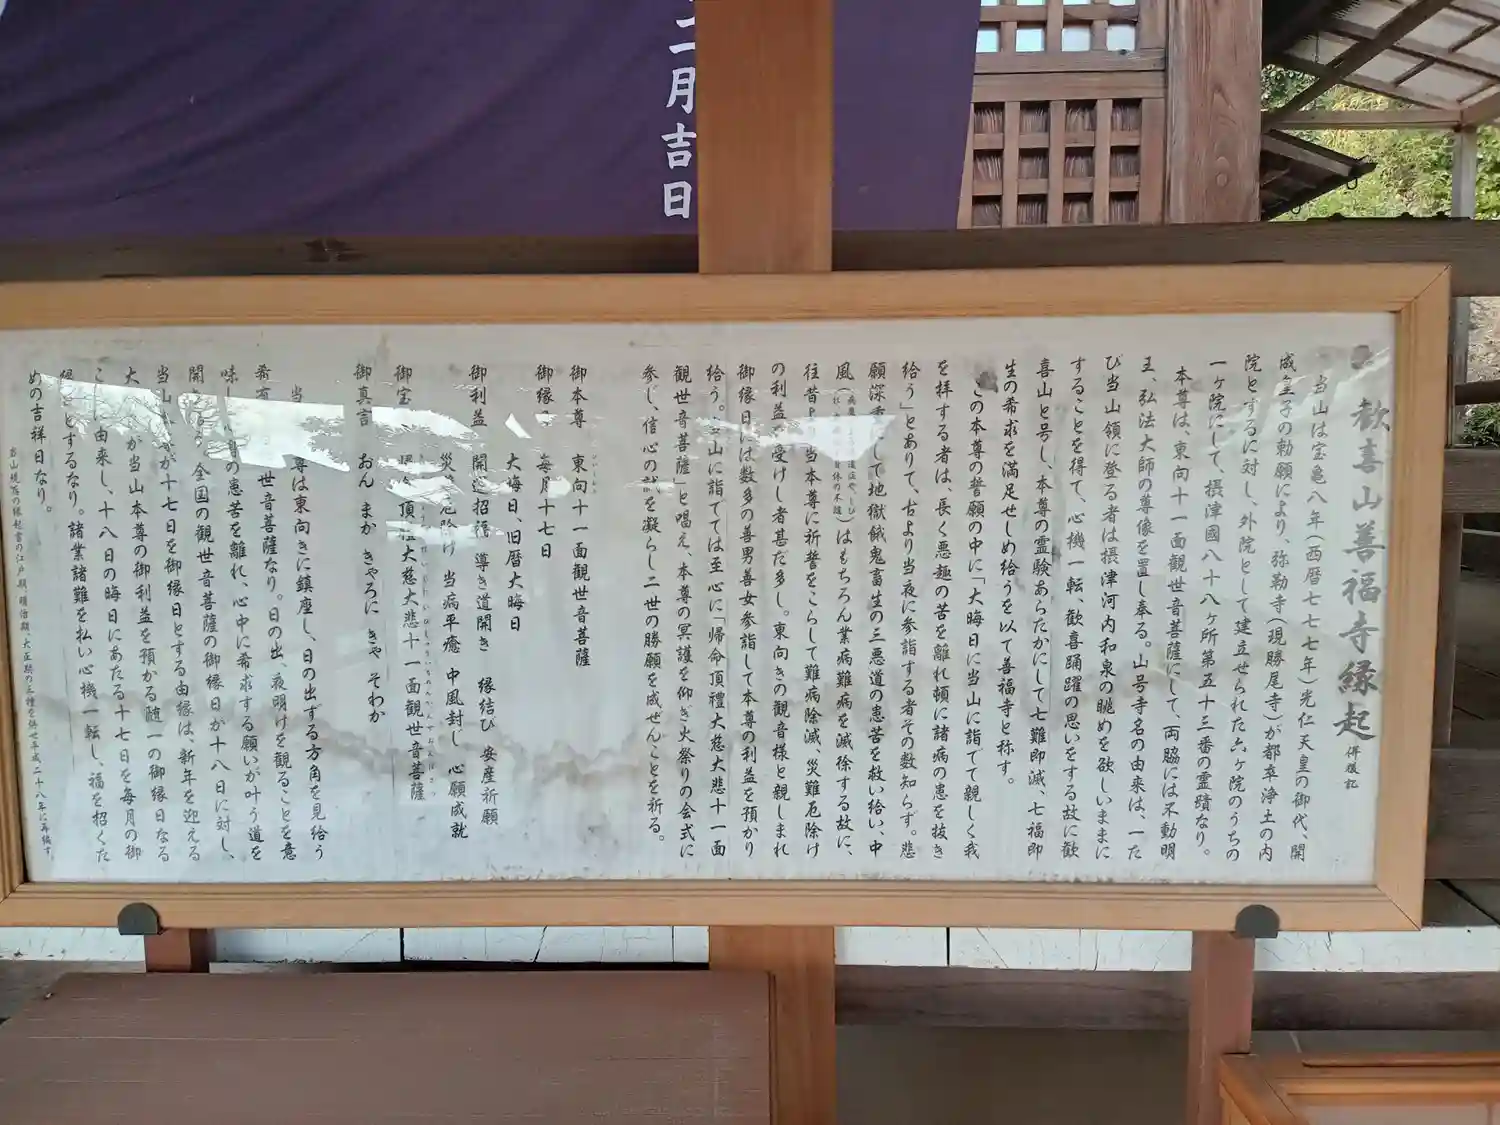 二月吉日
歓喜山善福寺縁起 併厳記
当山は宝亀八年(西暦七七七年)光仁天皇の御代、開
成皇子の勅願により、弥勒寺(現勝尾寺)が都率浄土の内
院とするに対し、外院として建立せられた六ヶ院のうちの
一ヶ院にして、摂津國八十八ヶ所第五十三番の霊蹟なり。
本尊は、東向十一面観世音菩薩にして、両脇には不動明
王、弘法大師の尊像を置し奉る。山号寺名の由来は、一た
び当山領に登る者は摂津河内和泉の眺めを欲しいままに
することを得て、心機一転、歓喜踊躍の思いをする故に歓
喜山と号し、本尊の霊験あらたかにして七難即滅、七福即
生の希求を満足せしめ給うを以て善福寺と称す。
この本尊の誓願の中に「大晦日に当山に詣でて親しく我
を拝する者は、長く悪趣の苦を離れ頓に諸病の患を抜き
給う」とありて、古より当夜に参詣する者その数知らず。悲
願深重にして地獄餓鬼畜生の三悪道の患苦を救い給い、中
風()はもちろん業病難病を滅除する故に、
往昔より当本尊に祈誓をこらして難病除滅、災難厄除け
の利益を受けし者甚だ多し。東向きの観音様と親しまれ
御縁日には数多の善男善女参詣して本尊の利益を預かり
給う。当山に詣でては至心に「帰命頂禮大慈大悲十一面
観世音菩薩」と唱え、本尊の冥護を仰ぎ火祭りの会式に
参じ、信心の誠を凝らし二世の勝願を成ぜんことを祈る。
御本尊 東向十一面観世音菩薩
御縁日 毎月十七日
大晦日、旧暦大晦日
御利益 開運招福 導き道開き 縁結び 安産祈願
災難厄除け 当病平癒 中風封じ 心願成就
御宝 頂禮大慈大悲十一面観世音菩薩
御真言 おん まか きゃろに きゃ そわか
当 尊は東向きに鎮座し、日の出ずる方角を見給う
希有 世音菩薩なり。日の出、夜明けを観ることを意
味し の患苦を離れ、心中に希求する願いが叶う道を
開 全国の観世音菩薩の御縁日が十八日に対し、
当山 が十七日を御縁日とする由縁は、新年を迎える
大 が当山本尊の御利益を預かる随一の御縁日なる
こ 由来し、十八日の晦日にあたる十七日を毎月の御
縁 とするなり。諸業諸難を払い心機一転し、福を招くた
めの吉祥日なり。
の江戸期、明治期、大正期の三種を併せ平成二十八年に再編す